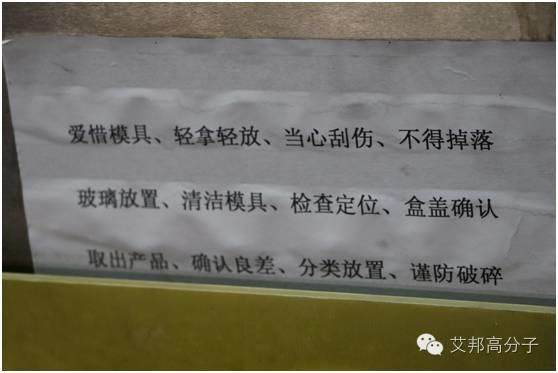 爱惜模具、轻拿轻放、当心刮伤、不得掉落
玻璃放置、清洁模具、检查定位、盒盖确认
取出产品、确认良差、分类放置、谨防破碎
艾邦高分子